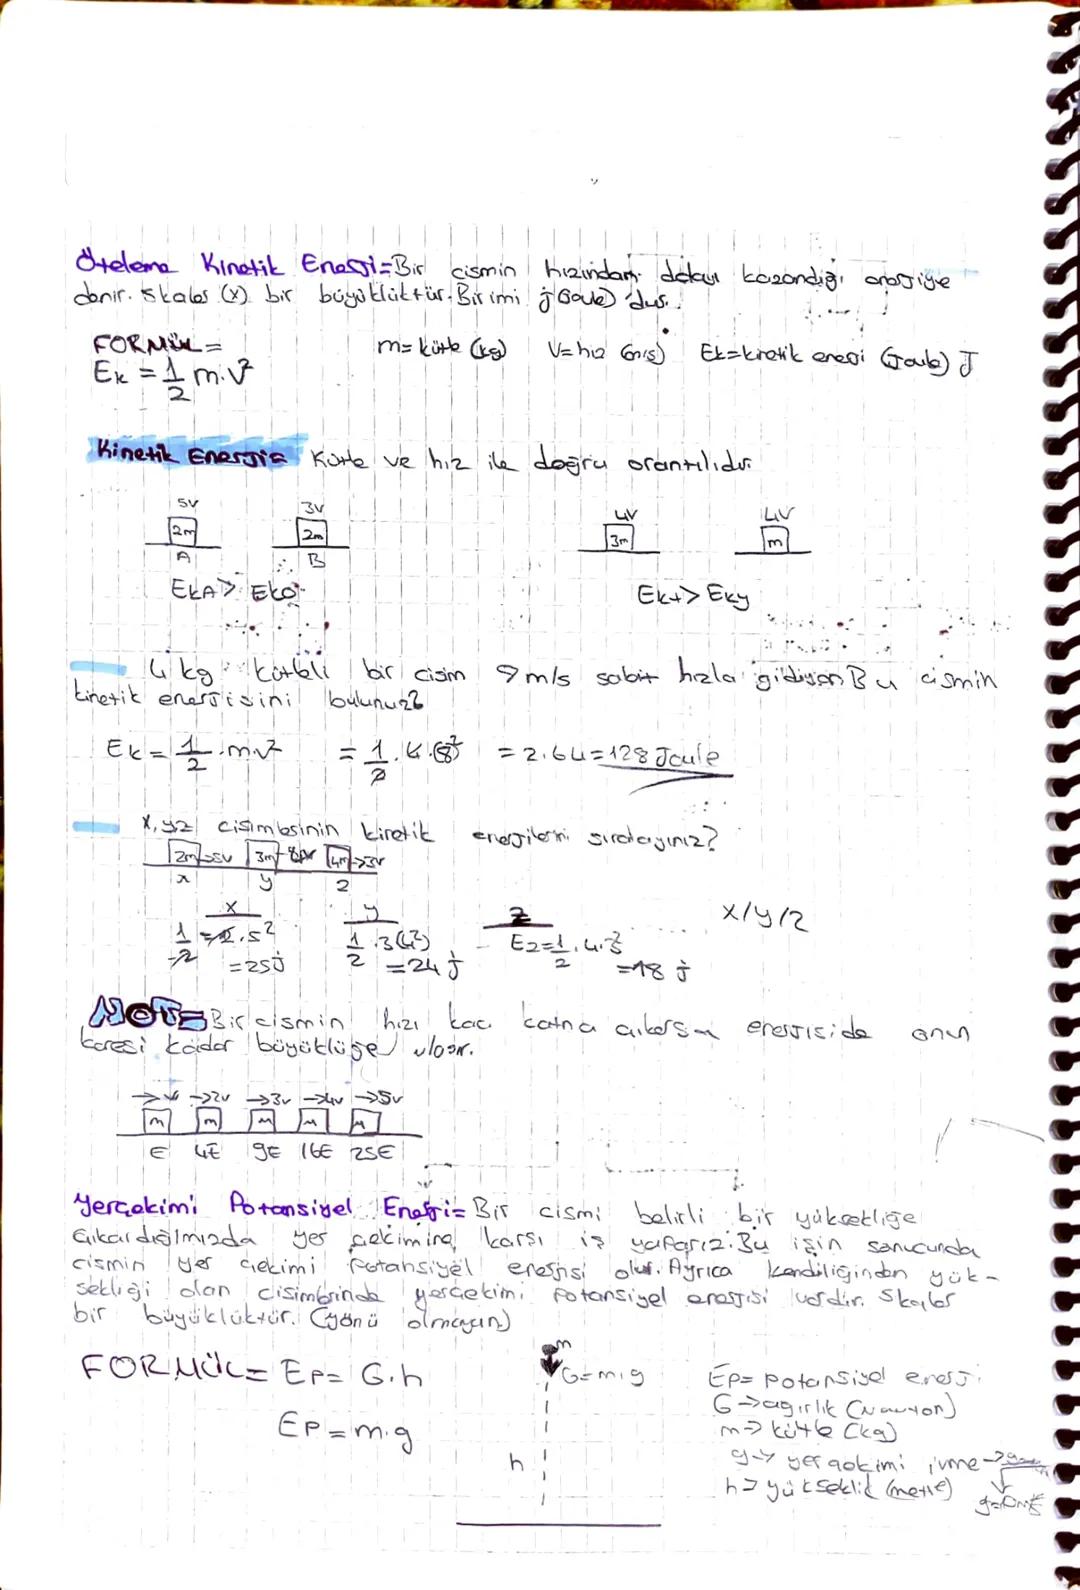 Öteleme Kinetik Enerji=Bir cismin hızından dolayı kazandığı enerjiye
denir. Skaler (x) bir büyüklüktür. Birimi j (joule) 'dur.
FORMÜL= m= kütle (kg) V= hız (m/s) Ek=kinetik enerji (Joule) J
Ek = 1/2 m.v²
Kinetik Enerji= Kütle ve hız ile doğru orantılıdır.
5v 3v 4v 4v
2m 2m 3m m
A B
EkA > Ekb Ekx > Eky
4 kg kütleli bir cisim 8 m/s sabit hızla gidiyor. Bu cismin
kinetik enerjisini bulunuz?
Ek = 1/2 .m.v² = 1/2 .4.(8)² = 2.64 = 128 Joule
x, y z cisimlerinin kinetik enerjilerini sıralayınız?
2m→5v 3m 4m→3v
x y z
x y z x/y/z
1/2 = 2.5² 1/2 .3(4²) Ez=1/2 .4.3²
=25j =24 j =18 j
NOT= Bir cismin hızı kaç katına çıkarsa enerjiside onun
karesi kadar büyüklüğe ulaşır.
→v →2v →3v →4v →5v
m m m m m
E 4E 9E 16E 25E
Yerçekimi Potansiyel Enerji= Bir cismi belirli bir yüksekliğe
çıkardığımızda yer çekimine karşı iş yaparız. Bu işin sonucunda
cismin yer çekimi potansiyel enerjisi olur. Ayrıca kendiliğinden yük-
sekliği olan cisimlerinde yerçekimi potansiyel enerjisi vardır. Skaler
bir büyüklüktür. (yönü olmayan)
m
FORMÜL= Ep= G.h G=m.g Ep= potansiyel enerji
G→ağırlık (Newton)
Ep = m.g m→ kütle (kg)
h g→ yer çekimi ivme→
h→ yükseklik (metre)